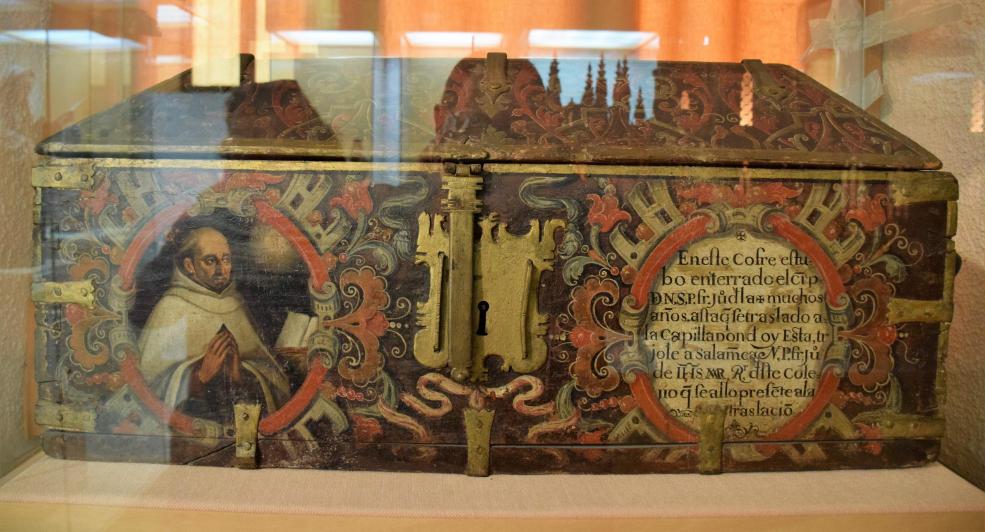 ✠
En este Cofre estu-
bo enterrado el cũp
D.N.S.P. fr. Jũ d la ✠ muchos
años. asta q̃ se traslado a
la Capilla dond oy Esta, tr
jole a salamca N.P. fr. Jũ
de dste Cole-
jio q̃ se allo presẽte a la
traslaciõ